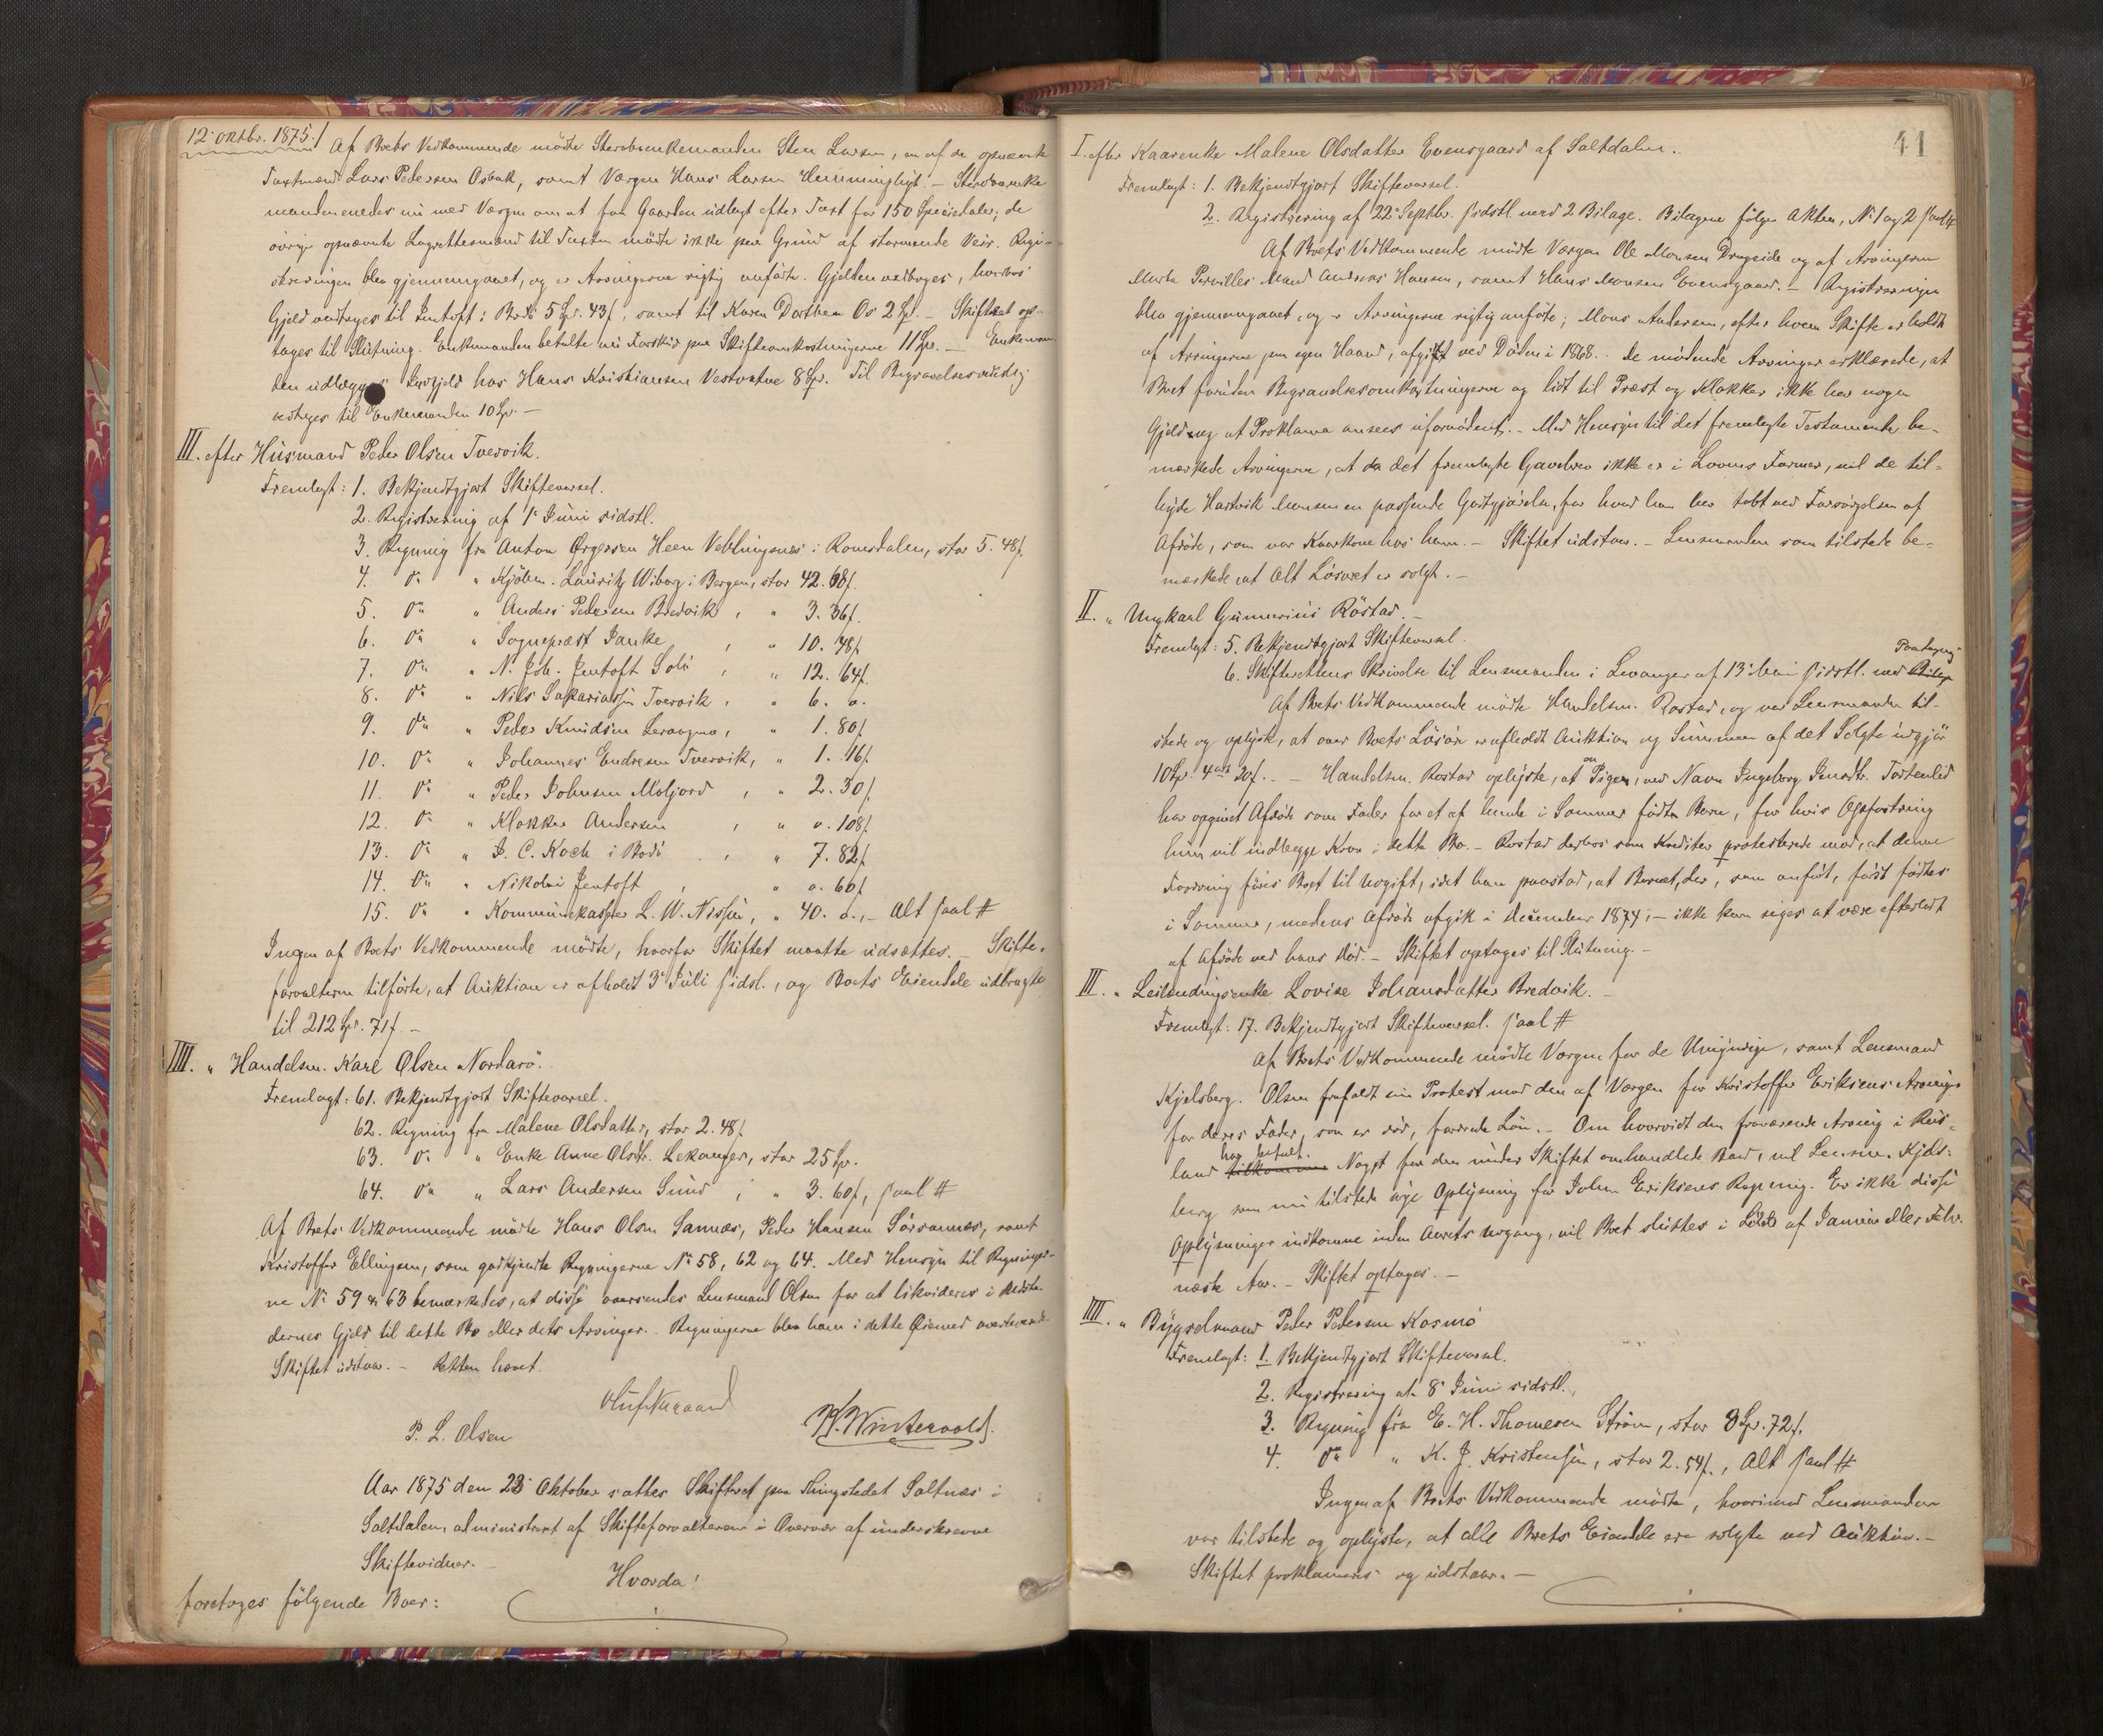 12' oktbr. 1875. / Af Boets Vedkommende mödte Sterbboenkemanden Sten Larsen, en af de opnævnte
Taxtmænd Lars Pedersen Osbak, samt Værgen Hans Larsen Hemminghyt. – Sterbboenke
manden enedes nu med Værgen om at faa Gaarden udlagt efter Taxt for 150 Speciedaler; de
övrige opnævnte Lagrettesmænd til Taxten mödte ikke paa Grund af stormende Veir. Regi-
streringen blev gjennemgaaet, og er Arvingerne rigtig anförte. Gjelden vedtoges, hvorhos
Gjeld vedtages til Jentoft i Bodö 5 Spr. 43 f, samt til Karen Dorthea Os 2 Sp. – Skiftet op-
tages til Slutning. Enkemanden betalte nu Forskud paa Skifteomkostningerne 11 Spr. – Enkeman
den udlægges Tilgjeld hos Hans Kristiansen Vestvatne 8 Spr. Til Begravelsesudlæg
vedtoges til Enkemanden 10 Spr. –
III. efter Husmand Peder Olsen Tvervik.
Fremlagt: 1. Bekjendtgjort Skiftevarsel.
2. Registrering af 1' Juni sidstl.
3. Regning fra Anton Ørgersen Heen Veblungsnes i Romsdalen, stor 5. 48 f.
4. do " Kjöbm. Lauritz Wiborg i Bergen, stor 42. 68 f.
5. do " Anders Pedersen Bredvik, " 3. 36 f.
6. do " Sognepræst Janke, " 10. 78 f.
7. do " N. Joh. Jentoft Solö, " 12. 64 f.
8. do " Nils Sakariassen Tvervik, " 6. o.
9. do " Peder Knudsen Leivognes, " 1. 80 f
10. do " Johannes Endresen Tvervik, " 1. 16 f.
11. do " Peder Johnsen Moljord, " 2. 30 f
12. do " Klokker Andersen, " o. 108 f
13. do " J. C. Koch i Bodö, " 7. 82 f
14. do " Nikolai Jentoft, " o. 60 f
15. do " Kommunekasserer L. W. Nissen, " 40. o., – Alt saal #
Ingen af Boets Vedkommende mödte, hvorfor Skiftet maatte udsættes. – Skifte-
forvalteren tilförte, at Auktion er afholdt 3' Juli sidstl., og Boets Eiendele udbragte
til 212 Spr. 71 f. –
IIII. " Handelsm. Karl Olsen Nordarö.
Fremlagt: 61. Bekjendtgjort Skiftevarsel.
62. Regning fra Malene Olsdatter, stor 2. 48 f.
63. do " Enke Anne Olsdtr. Lekanger, stor 25 Spr.
64. do " Lars Andersen Sund, " 3. 60 f, saal #
Af Boets Vedkommende mödte Hans Olsen Sannæs, Peder Hansen Sörsannæs, samt
Kristoffer Ellingsen, som godkjendte Regningerne No 58, 62 og 64. Med Hensyn til Regninger-
ne No 59 & 63 bemærkedes, at disse oversendes Lensmand Olsen for at likvideres i Vedkom-
dernes Gjeld til dette Bo eller dets Arvinger. Regningerne blev ham i dette Öiemed overleverede.
Skiftet udstaar. – Retten hævet.
P. L. Olsen
K. Wintervold.
Aar 1875 den 23' Oktober sattes Skifteret paa Thingstedet Saltnæs i
Saltdalen, administreret af Skifteforvalteren i Overvær af underskrevne
Skiftevidner. –
Hvorda!
foretoges fölgende Boer:
41
I. efter Kaarenke Malene Olsdatter Evensgaard af Saltdalen. –
Fremlagt: 1. Bekjendtgjort Skiftevarsel.
2. Registrering af 22' Septbr. sidstl. med 2 Bilage. Bilagene fölger Akten, No 1 og 2 saal #
Af Boets Vedkommende mödte Værgen Ole Monsen Drageide og af Arvingerne
Marta Pernilles Mand Andreas Hansen, samt Hans Monsen Evensgaard. – Registreringen
blev gjennemgaaet, og er Arvingerne rigtig anförte; Mons Andersen, efter hvem Skifte er holdt
af Arvingerne paa egen Haand, afgik ved Döden i 1868. – De mödende Arvinger erklærede, at
Boet foruden Begravelsesomkostningerne og lidt til Præst og Klokker ikke har nogen
Gjeld, og at Proklama ansees ufornödent. – Med Hensyn til det fremlagte Testamente be-
mærkede Arvingerne, at da det fremlagte Gavebrev ikke er i Lovens Former, vil de til-
byde Hartvik Monsen en passende Godtgjörelse, for hvad han har tabt ved Forsörgelsen af
Afdöde, som var Kaarkone hos ham. – Skiftet udstaar. – Lensmanden som tilstede be-
mærkede at Alt Lösöret er solgt. –
II. " Ungkarl Gunnerius Röstad. –
Fremlagt: 5. Bekjendtgjort Skiftevarsel.
Paategning
6. Skifterettens Skrivelse til Lensmanden i Levanger af 13' Mai sidstl. med Bilage
Af Boets Vedkommende mödte Handelsm. Rostad, og var Lensmanden til-
stede og oplyste, at over Boets Lösöre er afholdt Auktion og Summen af det Solgte udgjör
10 Spr. 4 ort 20 f. – Handelsm. Rostad oplyste, at en Pigen, ved Navn Ingeborg Jensdtr. Tortenlid
har opgivet Afdöde som Fader for et af hende i Sommer födte Barn, for hvis Opfostring
hun vil indlegge Krav i dette Bo. – Rostad derhos som Kreditor protesterede mod, at denne
Fordring föres Boet til Udgift, idet han paastod, at Barnet, der, som anfört, först födtes
i Sommer, medens Afdöde afgik i December 1874, – ikke kan siges at være efterladt
af Afdöde ved hans Död. – Skiftet optages til Slutning. –
III. " Leilendingsenke Lovise Johansdatter Bredvik. –
Fremlagt: 17. Bekjendtgjort Skiftevarsel. saal #
Af Boets Vedkommende mödte Værgen for de Umyndige, samt Lensmand
Kjelsberg. Olsen frafaldt sin Protest mod den af Værgen for Kristoffer Eriksens Arvinge
for deres Fader, som er död, fordrede Lön. – Om hvorvidt den fraværende Arving i Rus-
har betalt.
land tilkommer Noget for den under Skiftet omhandlede Baad, vil Lensm. Kjels-
berg som nu tilstede söge Oplysning for John Eriksens Regning. Er ikke disse
Oplysninger indkomne inden Aarets Udgang, vil Boet sluttes i Löbet af Januar eller Febr.
næste Aar. – Skiftet optages. –
IIII. " Bygselmand Peder Pedersen Kosmo
Fremlagt: 1. Bekjendtgjort Skiftevarsel.
2. Registrering af 8' Juni sidstl.
3. Regning fra E. H. Thomesen Ström, stor 8 Spr. 72 f.
4. do " K. J. Kristensen, stor 2. 54 f., Alt saal #
Ingen af Boets Vedkommende mödte, hvorimod Lensmanden
var tilstede og oplyste, at alle Boets Eiendele ere solgte ved Auktion. –
Skiftet proklameres og udstaar. –